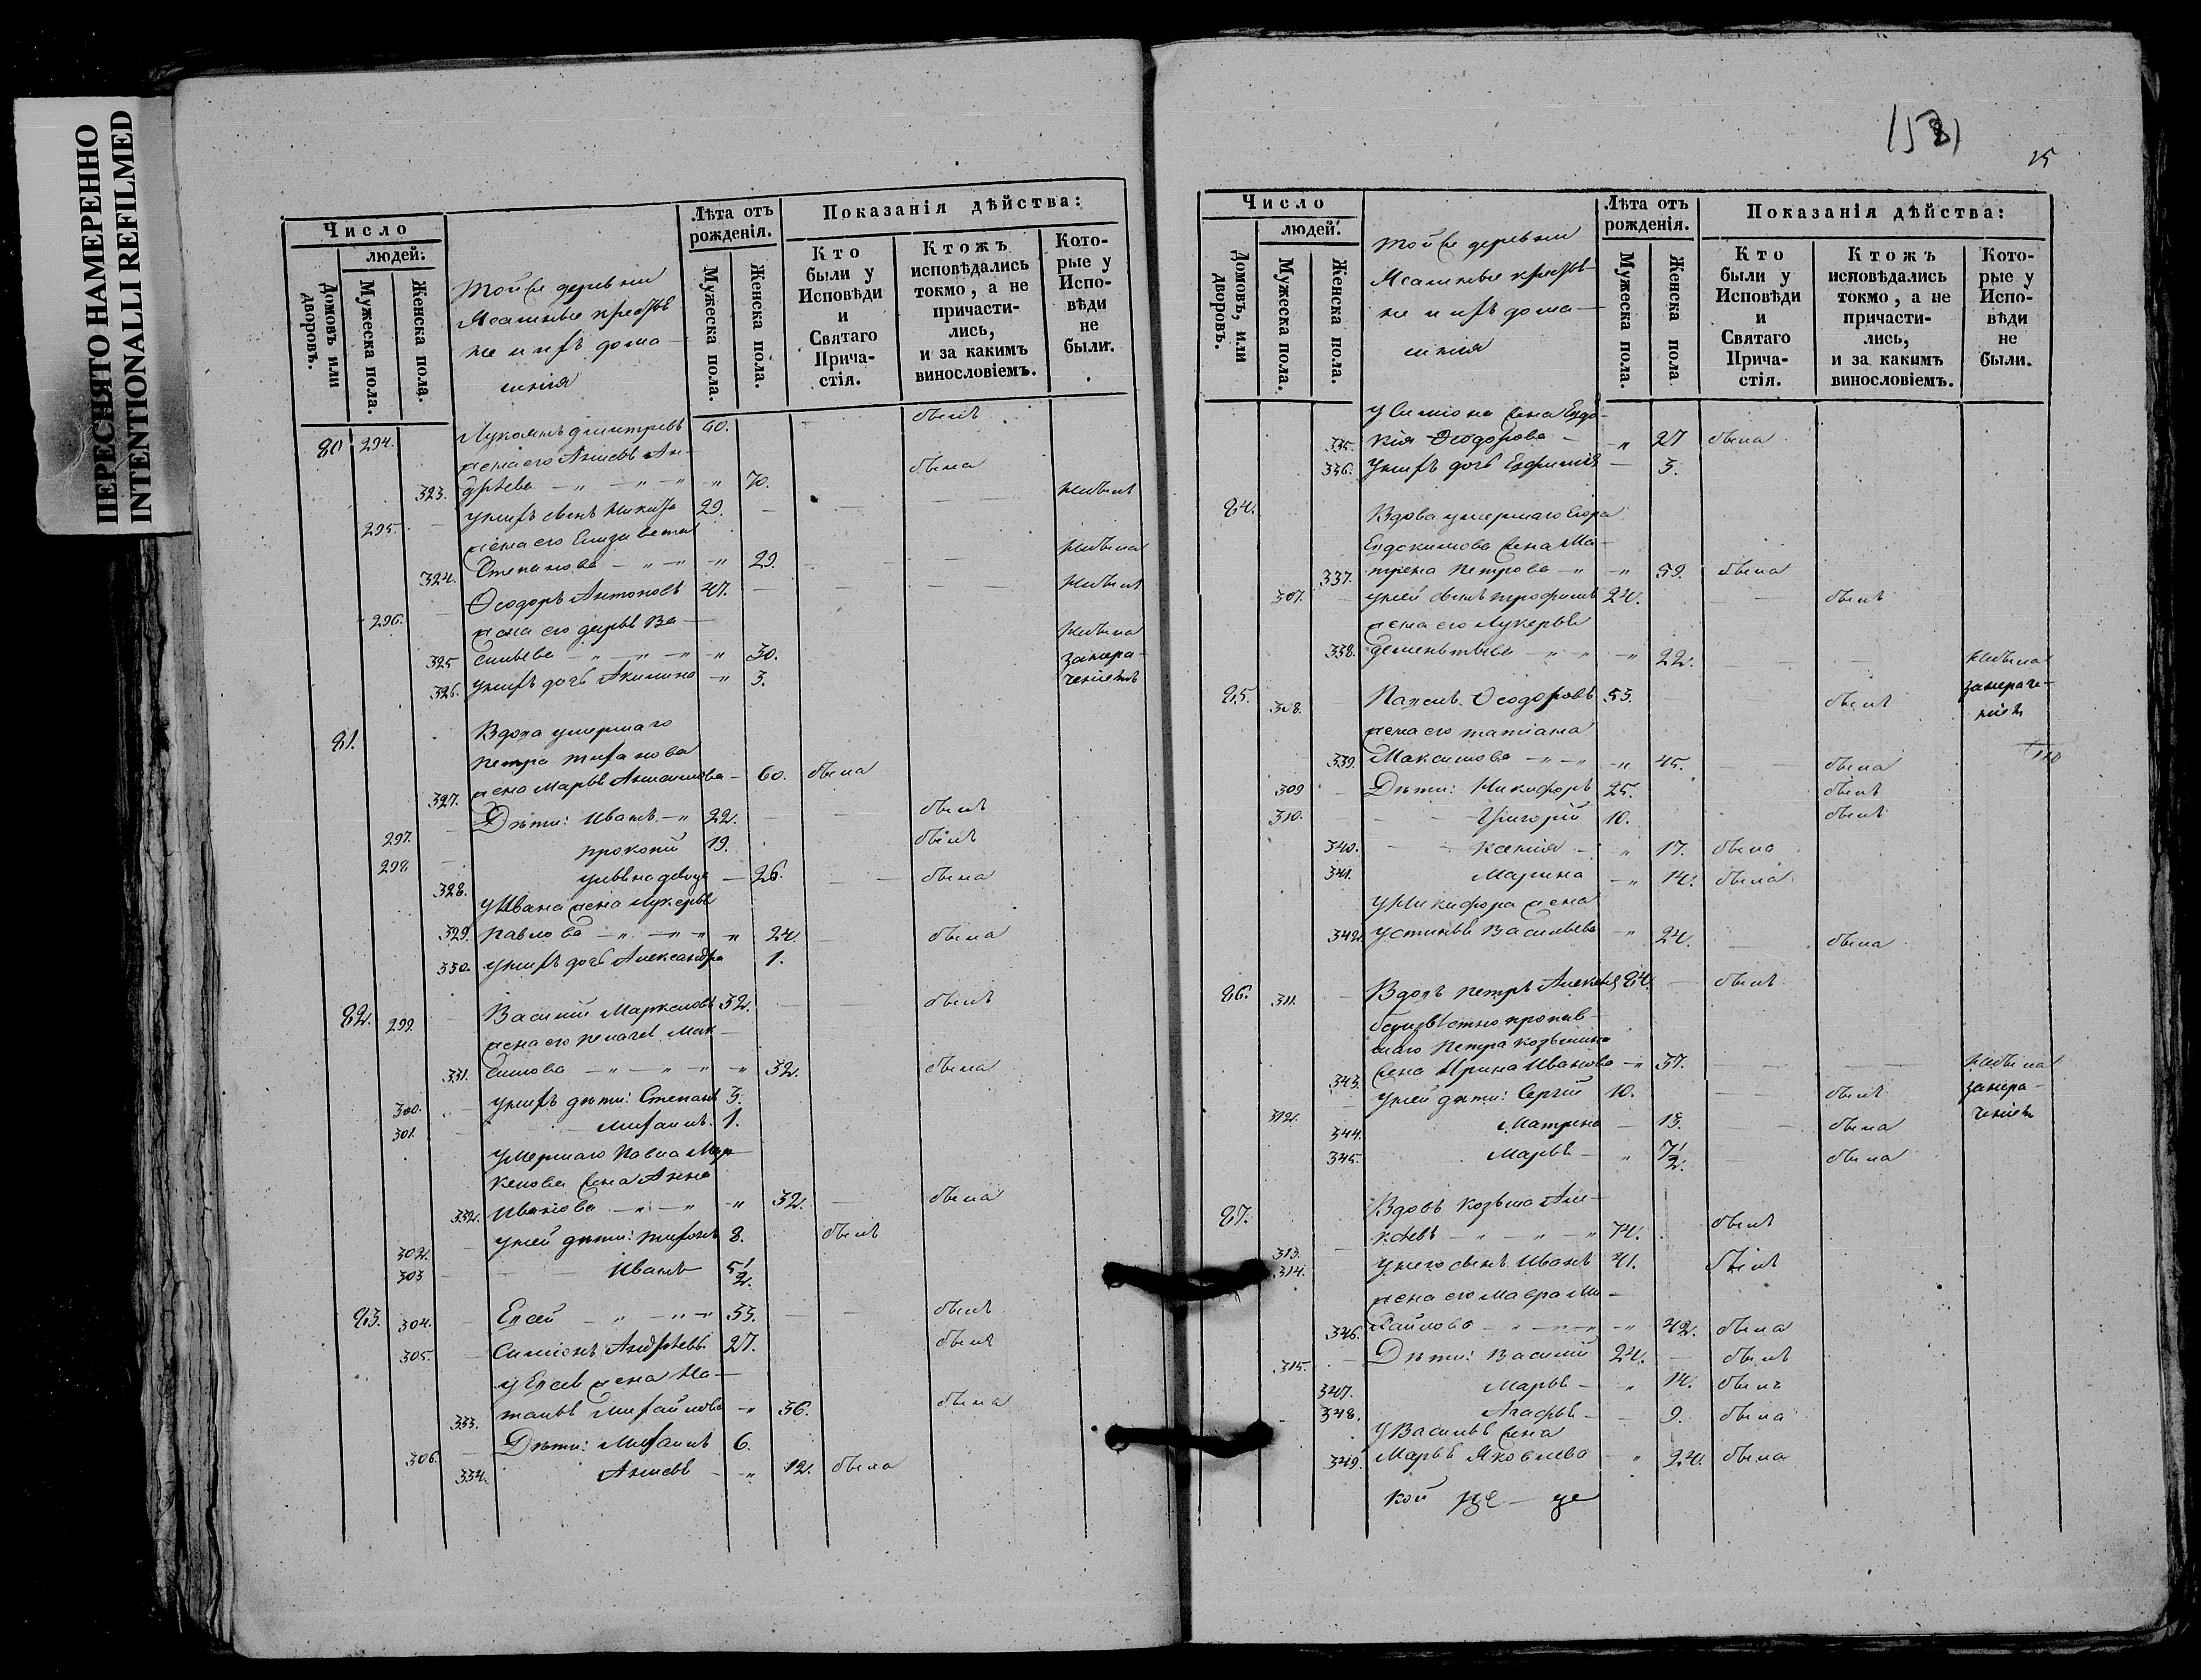 ПЕРЕСНЯТО НАМЕРЕННО
INTENTIONALLI REFILMED
Число
людей:
Домовъ или дворовъ.
Мужеска пола.
Женска пола.
той же деревни
Ясашные крестья
не и ихъ дома-
шнія
Лѣта отъ рожденія.
Мужеска пола.
Женска пола.
Показанія дѣйства:
Кто были у Исповѣди и Святаго Прича-стія.
Ктожъ исповѣдались токмо, а не причасти-лись, и за какимъ винословіемъ.
Кото-рые у Испо-вѣди не были.
80 294. Дмитревъ 60. былъ
жена его Ан-
323. дрѣева 70. была
295. у нихъ сынъ Никита 29. не былъ
жена его Елизавета
324. Степанова 29. не была
296. Ѳеодоръ Антоновъ 47. не былъ
жена его Дарья Ва-
325 сильева 30. не была
326. у нихъ дочь Акилина 3.
81. Вдова умершаго
Петра
327. жена Марья 60. была
297. Дѣти: Иванъ 22. былъ
298 Прокопій 19. былъ
328. Ульяна девица 26. была
у Ивана жена Лукерья
329. Павлова 24. была
330. у нихъ дочь Александра 1.
82. 299. Василий 32. былъ
жена его Пелагея Мак-
331. симова 32. была
300. у нихъ дѣти: Степанъ 3.
301. Михаилъ 1.
умершаго Павла
жена Анна
332. Иванова 32. была
302. у ней дѣти: 8. былъ
303 Иванъ 5½.
83. 304. 53. былъ
305. Симіонъ Андрѣевъ 27. былъ
жена На-
333. талья Михайлова 36. была
306. Дѣти: Михаилъ 6.
334. 12. была
15
Число
людей.
Домовъ, или дворовъ.
Мужеска пола.
Женска пола.
той же деревни
Ясашные крестья-
не и ихъ дома-
шнія
Лѣта отъ рожденія.
Мужеска пола.
Женска пола
Показанія дѣйства:
Кто были у Исповѣди и Святаго Прича-стія.
Ктожъ исповѣдались токмо, а не причасти-лись, и за какимъ винословіемъ.
Кото-рые у Испо-вѣди не были.
у Симіона жена Евдо-
335. кія Ѳеодорова 27 была
336. у нихъ дочь Евфимія 3.
84. Вдова умершаго Егора
Евдокимова жена Ма-
337. трена Петрова 59. была
307. у ней сынъ Трофимъ 24. былъ
жена его Лукерья
338. Дементьева 22. не была
85. 308. Ѳеодоровъ 53. былъ
жена его Татіана
339. Максимова 45. была
309 Дѣти: Никифоръ 25. былъ
310. Григорій 10. былъ
340. Ксенія 17. была
341. Марина 14. была
у Никифора жена
342. Устинья Васильева 24. была
86. 311. Вдовъ Петръ 84. былъ
безизвѣстно пропав-
шаго Петра Козьмина
343. жена Ирина Иванова 37. не была
312. у ней дѣти: Сергій 10. былъ
344. Матрена 13. была
345. Марья 7½. была
87. Вдовъ Козьма Але-
313. кѣевъ 74. былъ
314. у него сынъ Иванъ 41. былъ
жена его Мавра Ми-
346. хайлова 42. была
315. Дѣти: Василий 24. былъ
347. Марья 14. была
348. Агафья 9. была
у Василья жена
349. Марья Яковлева 24. была